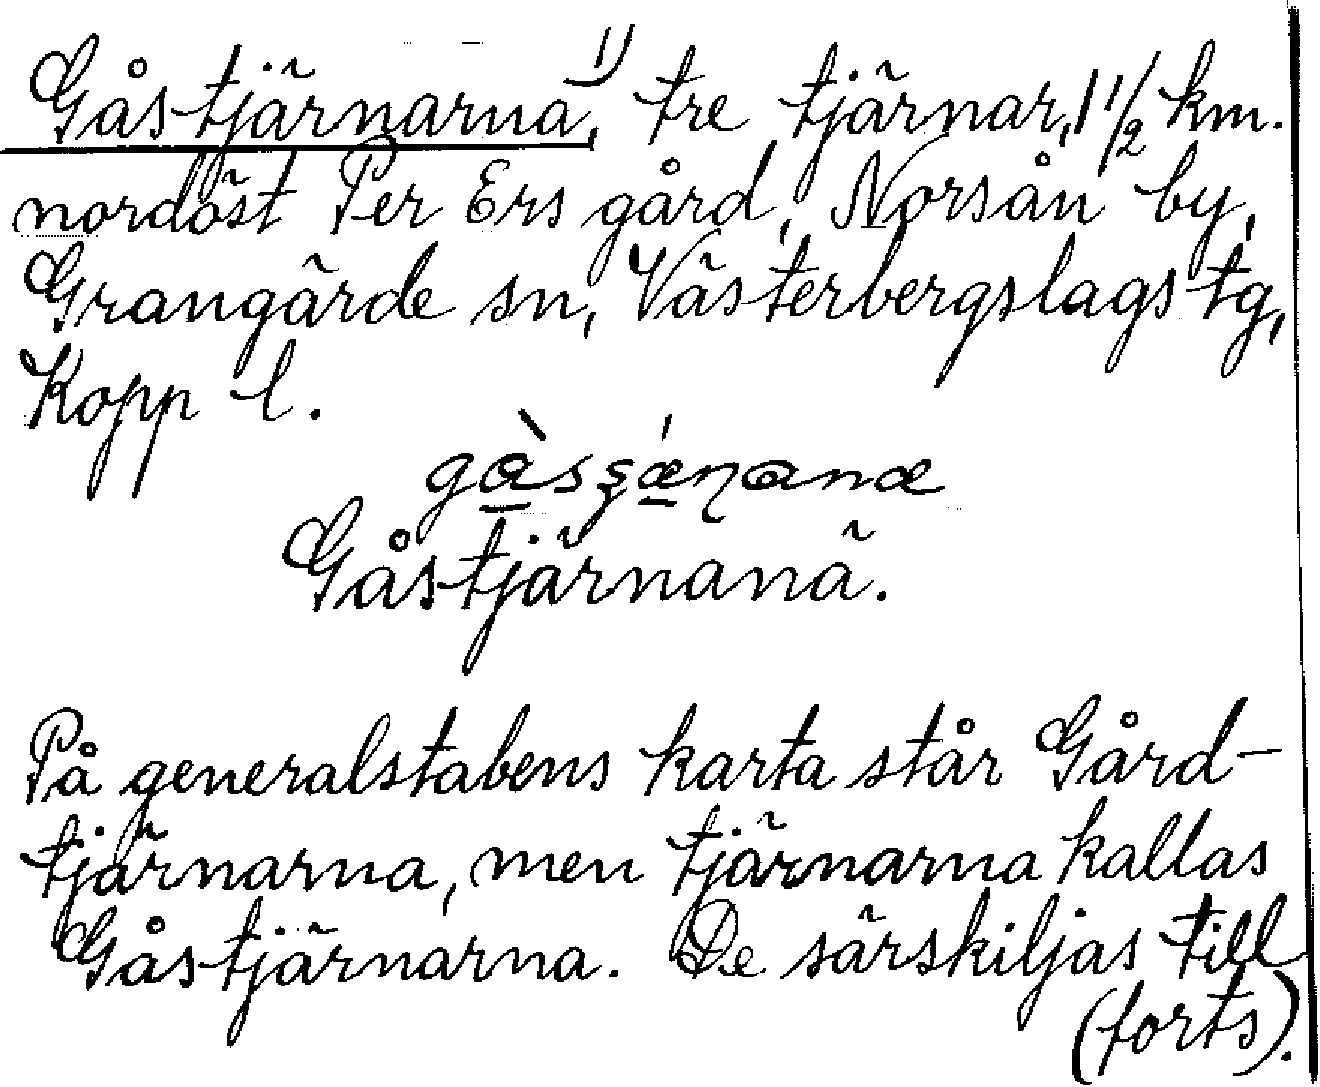 Gåstjärnarna,¹⁾ tre tjärnar, 1 1/2 km.
nordöst Per Ers gård, Norsån by,
Grangärde sn, Västerbergslags tg,
Kopp l.
Gåstjärnanä.
På generalstabens karta står Gård-
tjärnarna, men tjärnarna kallas
Gåstjärnarna. De särskiljas till
(forts).